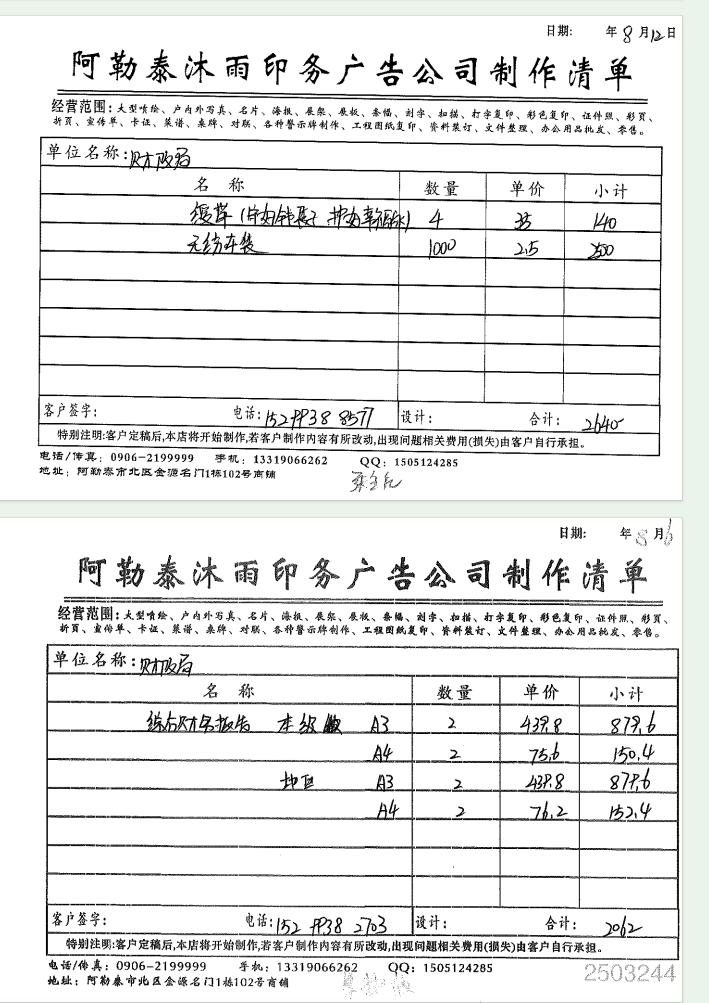 日期: 年 8 月 12 日
阿勒泰沐雨印务广告公司制作清单
经营范围:大型喷绘、户内外写真、名片、海报、展架、展板、条幅、刻字、扫描、打字复印、彩色复印、证件照、彩页、
折页、宣传单、卡证、菜谱、桌牌、对联、各种警示牌制作、工程图纸复印、资料装订、文件整理、办公用品批发、零售。
单位名称:财政局
名 称 数量 单价 小计
4 35 140
1000 2.5 2500
客户签字: 电话: 15299388577 设计: 合计: 2640
特别注明:客户定稿后,本店将开始制作,若客户制作内容有所改动,出现问题相关费用(损失)由客户自行承担。
电话/传真: 0906-2199999 手机: 13319066262 QQ: 1505124285
地址: 阿勒泰市北区金源名门1栋102号商铺
日期: 年 8 月 6
阿勒泰沐雨印务广告公司制作清单
经营范围:大型喷绘、户内外写真、名片、海报、展架、展板、条幅、刻字、扫描、打字复印、彩色复印、证件照、彩页、
折页、宣传单、卡证、菜谱、桌牌、对联、各种警示牌制作、工程图纸复印、资料装订、文件整理、办公用品批发、零售。
单位名称:财政局
名 称 数量 单价 小计
综合财务报告 本级 A3 2 439.8 879.6
A4 2 75.6 150.4
地区 A3 2 439.8 879.6
A4 2 76.2 152.4
客户签字: 电话: 15299382703 设计: 合计: 2062
特别注明:客户定稿后,本店将开始制作,若客户制作内容有所改动,出现问题相关费用(损失)由客户自行承担。
电话/传真: 0906-2199999 手机: 13319066262 QQ: 1505124285
地址: 阿勒泰市北区金源名门1栋102号商铺
2503244